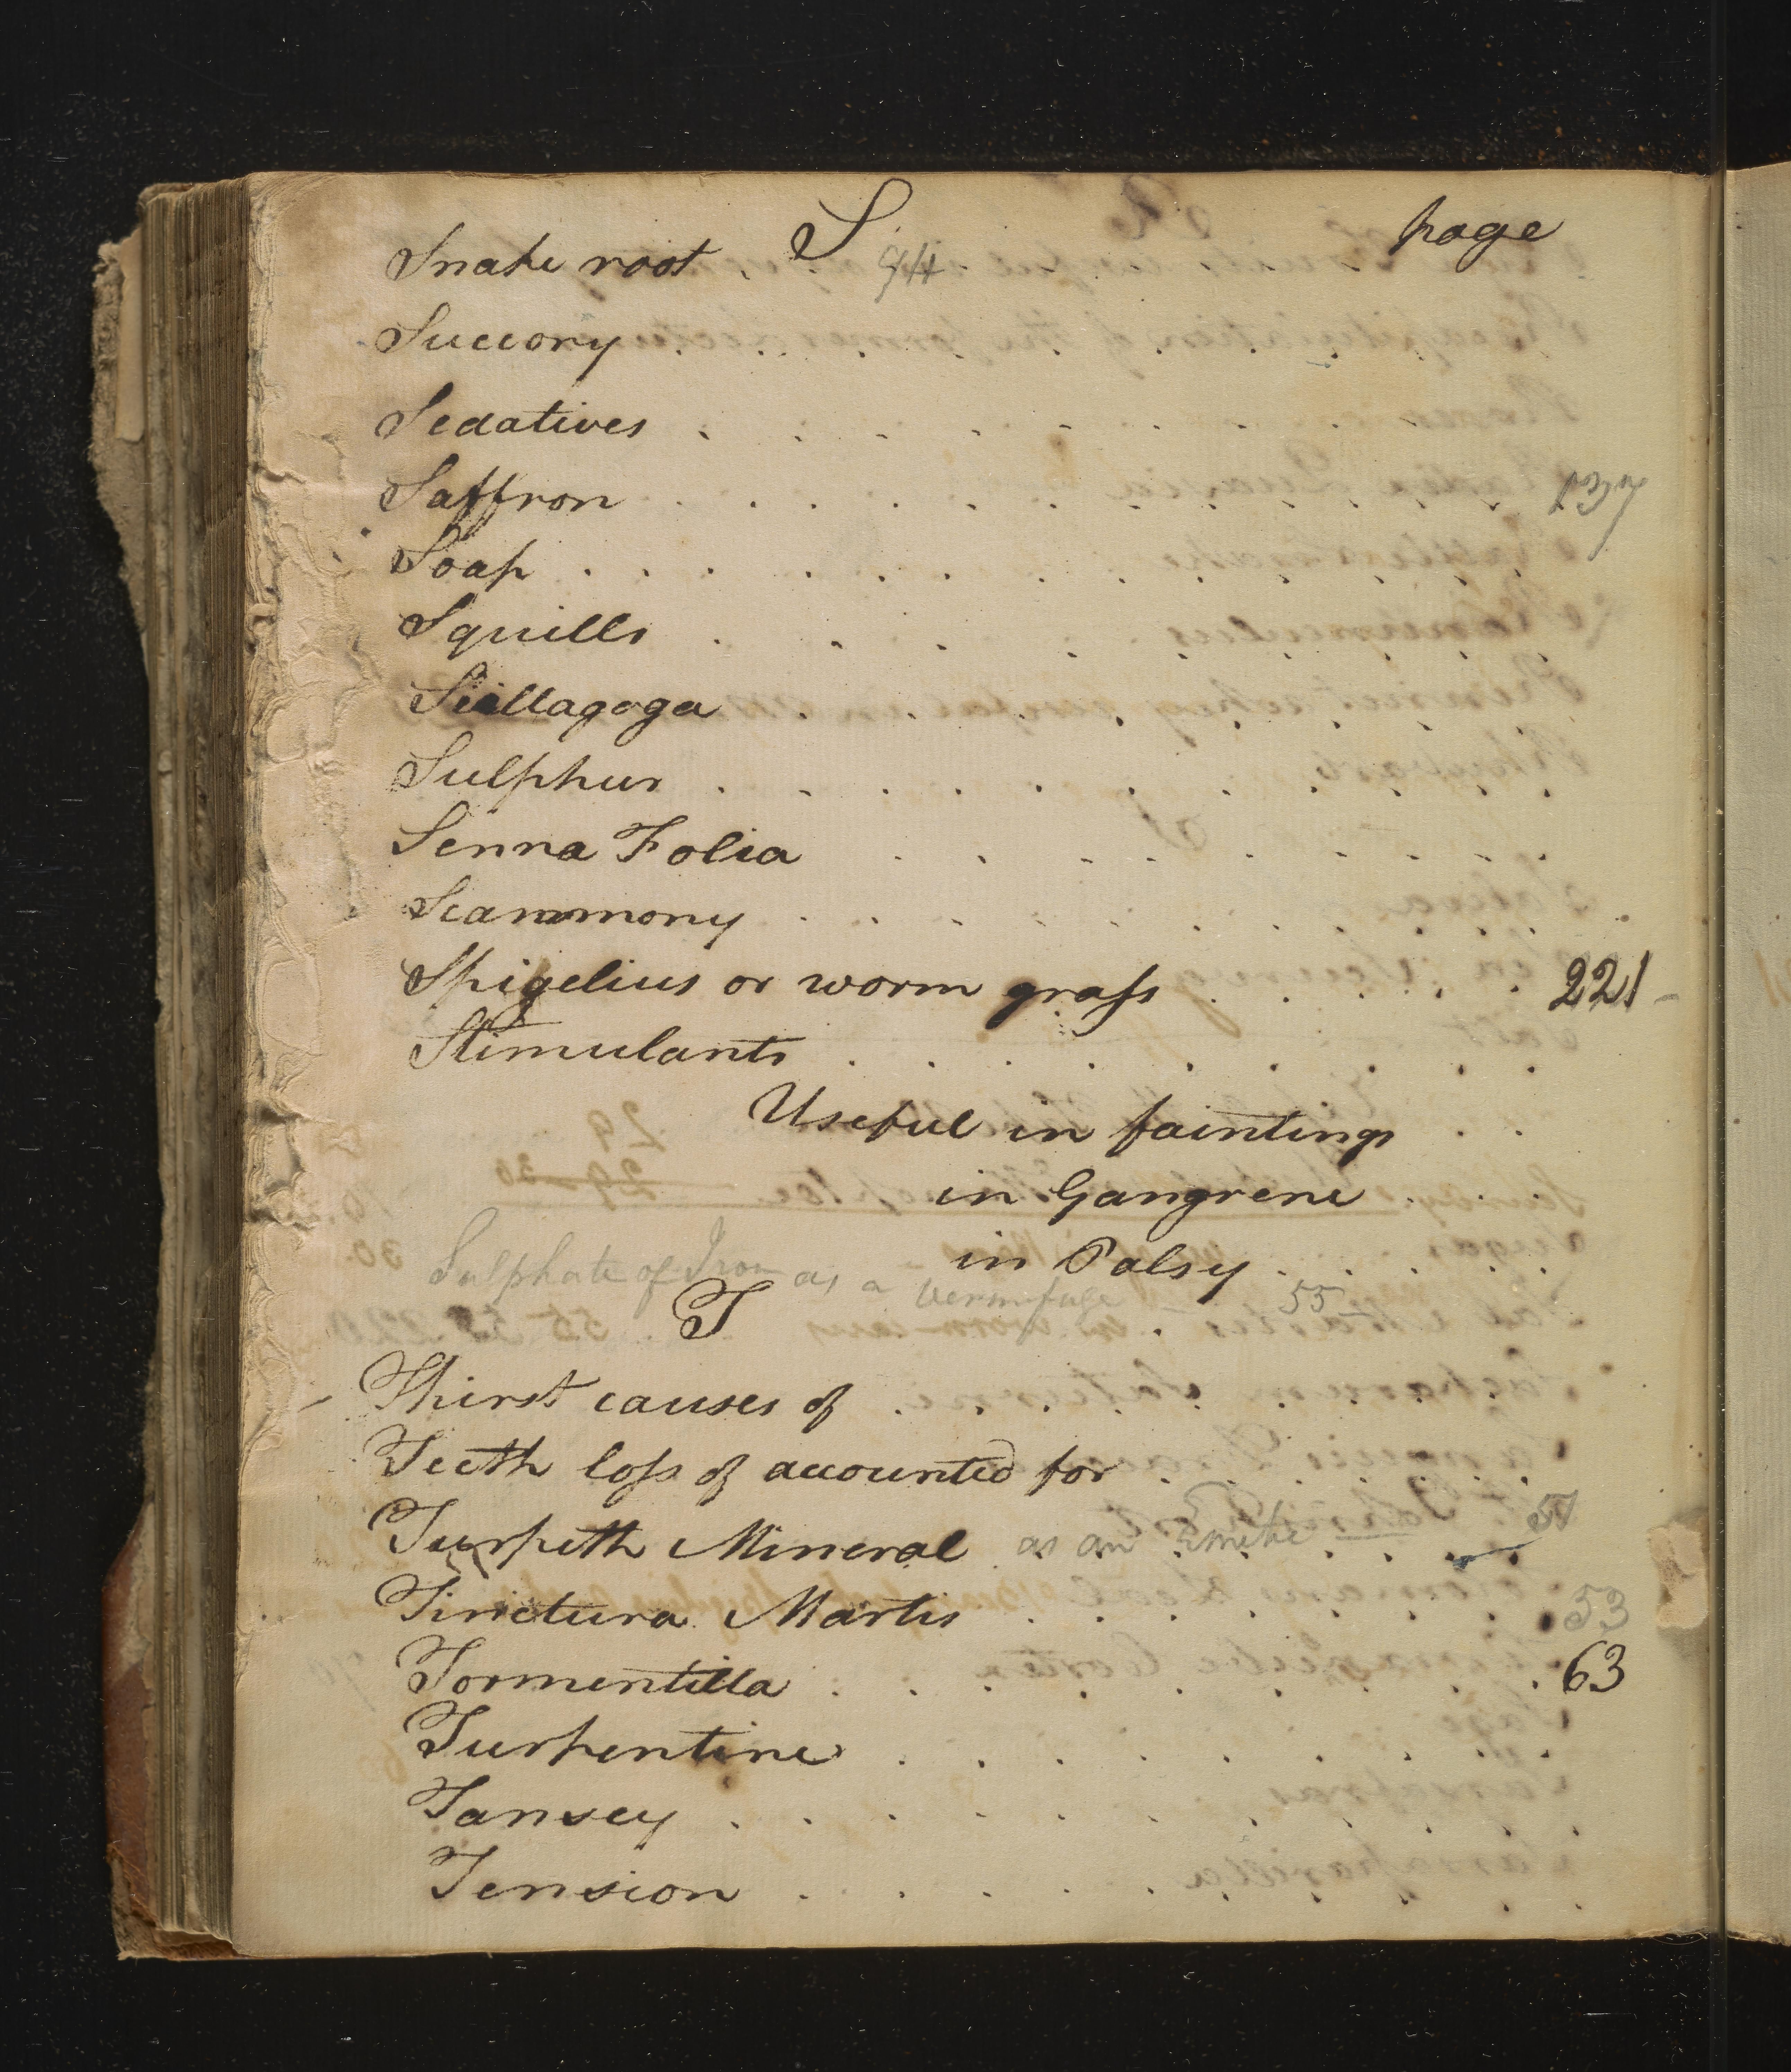 S page
Snake root . 94
Succory . . . . . . . . . .
Sedatives . . . . . . . . . .
Saffron . . . . . . . . . .
Soap . . . . . . . . . . . .
Squills . . . . . . . .
Siallagoga . . . . . . . . .
Sulphur . . . . . . . . . .
Senna Folia . . . . . . . .
Scammony . . . . . . . . . .
Spigelius or worm grass . . . . . 221
Stimulants . . . . . . . . .
Useful in faintings . .
in Gangrene . . .
in Palsy . . . . . .
Sulphate of Iron as a vermifuge 55
T
Thirst causes of . . . . . . . . .
Teeth loss of accounted for . . . . . . .
Turpeth Mineral as an Emetic 51
Tinctura Martis . . . . . . . 53
Tormentilla . . . . . . . . 63
Turpentine . . . . . . . . .
Tansey . . . . . . . . . .
Tension . . . . . . . . . .